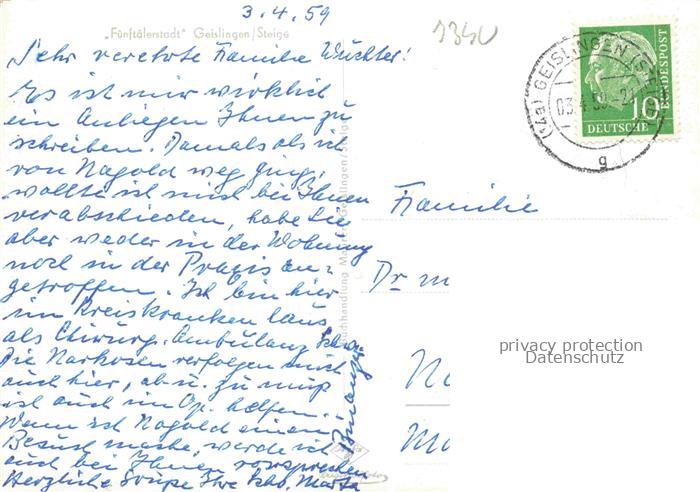 3.4.59
„Fünftälerstadt" Geislingen/Steige
Sehr verehrte Familie Wüchter!
Es ist mir wirklich
ein Anliegen Ihnen zu
schreiben. Damals als ich
von Nagold weg ging,
wollte ich mich bei Ihnen
verabschieden, habe Sie
aber weder in der Wohnung
noch in der Praxis an-
getroffen. Ich bin hier
im Kreiskrankenhaus
als Chirurg. Ambulanz Schw.
Die Narkosen verfolgen mich
auch hier, ab u. zu muß
ich auch im Op. helfen.
Wenn ich Nagold einen
Besuch mache, werde ich
auch bei Ihnen vorsprechen
Herzliche Grüße Ihre Schw. Marta
Binanzer
1340
(14a) GEISLINGEN (STEIGE)
03.4.59
g
10
DEUTSCHE
BUNDESPOST
Familie
Dr. m
privacy protection
Datenschutz